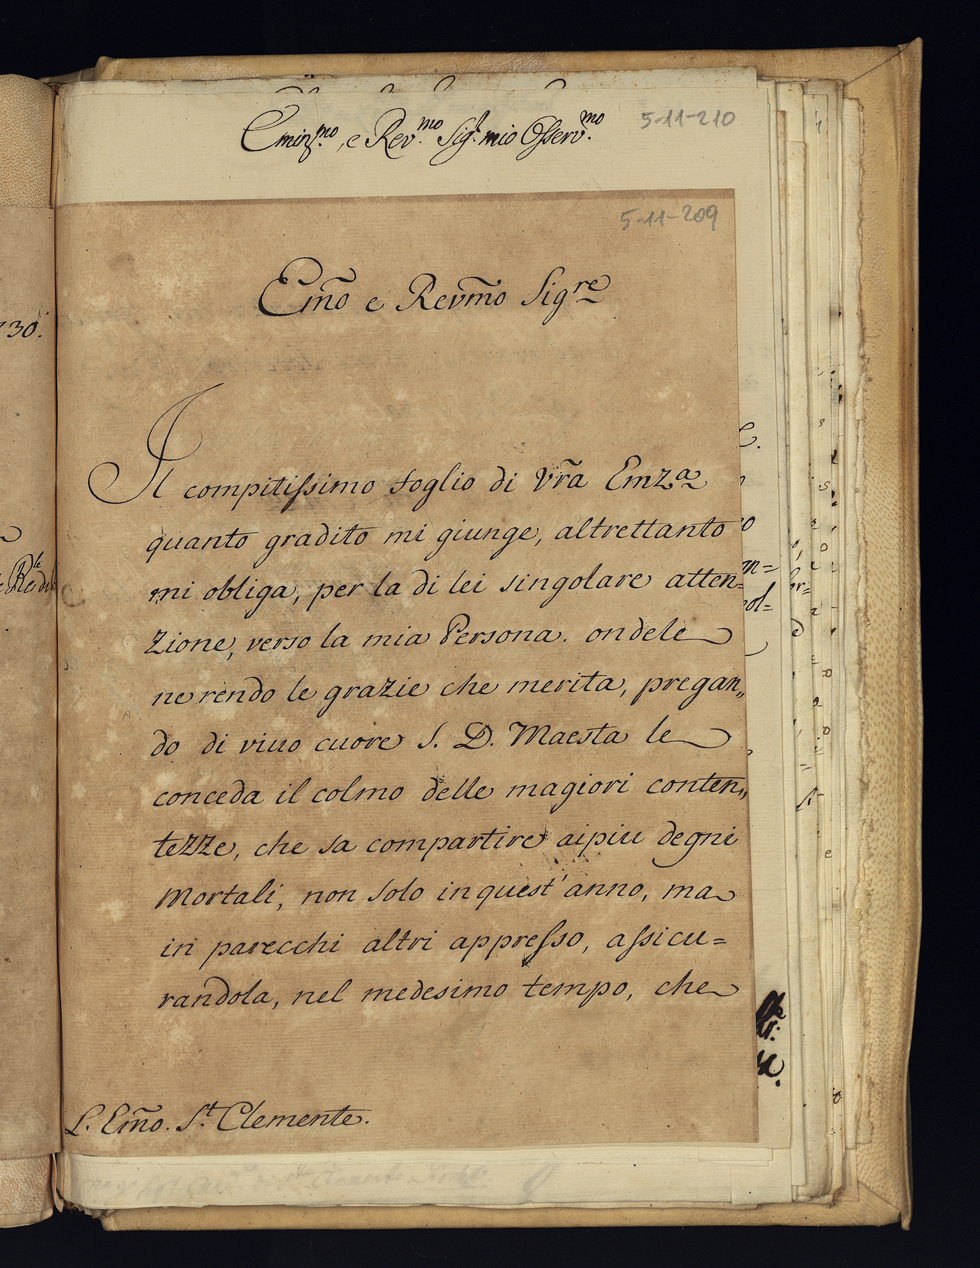 Emin.mo, e Rev.mo Sig.r mio Osserv.mo
5-11-210
5-11-209
Em̃o e Revm̃o Sigre
Il compitissimo foglio di Vr̃a Emza
quanto gradito mi giunge, altrettanto
mi obliga, per la di lei singolare atten=
zione, verso la mia Persona. onde le
ne rendo le grazie che merita, pregan„
do di viuo cuore S. D. Maesta le
conceda il colmo delle magiori conten„
tezze, che sa compartire aipiu degni
Mortali, non solo in quest' anno, ma
in parecchi altri appresso, assicu=
randola, nel medesimo tempo, che
S. Em̃o. St. Clemente.
730.